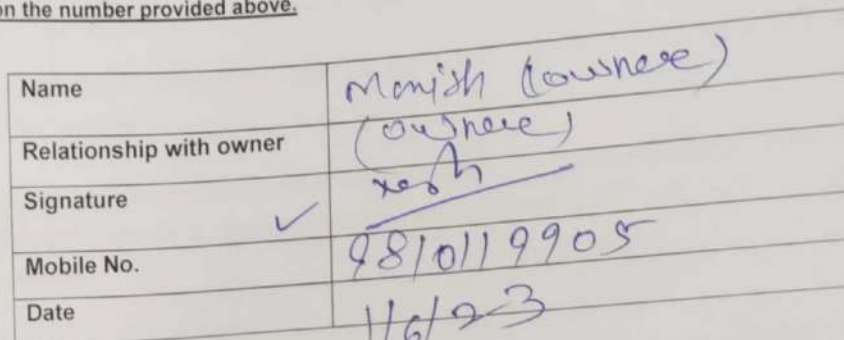 on the number provided above.
Name Manish (ownere)
Relationship with owner (ownere)
Signature
Mobile No. 9810119905
Date 1/6/23